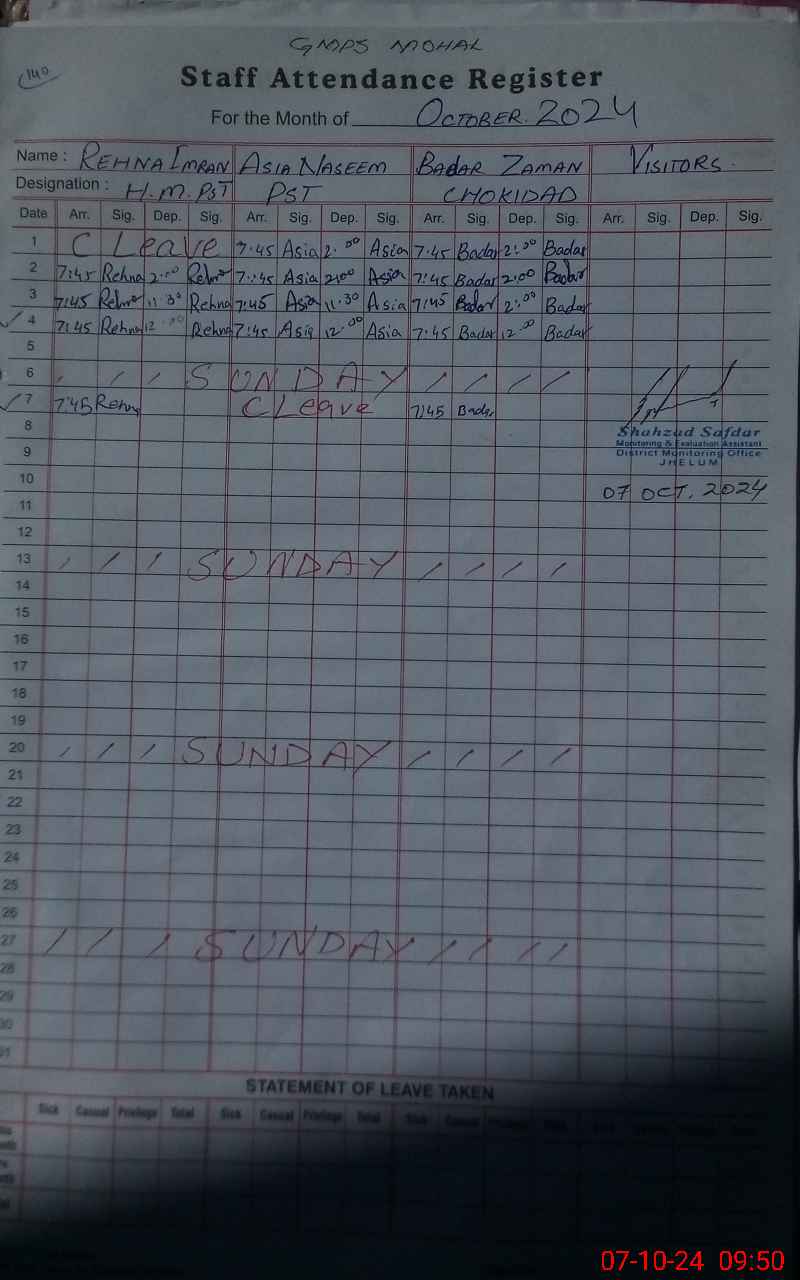 GMPS MOHAL
140
Staff Attendance Register
For the Month of OCTOBER. 2024
Name : REHNA IMRAN ASIA NASEEM BADAR ZAMAN VISITORS.
Designation : H.M. PST PST CHOKIDAD
Date Arr. Sig. Dep. Sig. Arr. Sig. Dep. Sig. Arr. Sig. Dep. Sig. Arr. Sig. Dep. Sig.
1 C Leave 7:45 Asia 2:00 Asia 7:45 Badar 2:00 Badar
2 7:45 Rehna 2:00 Rehna 7:45 Asia 2:00 Asia 7:45 Badar 2:00 Badar
3 7:45 Rehna 11:30 Rehna 7:45 Asia 11:30 Asia 7:45 Badar 2:00 Badar
4 7:45 Rehna 12:00 Rehna 7:45 Asia 12:00 Asia 7:45 Badar 12:00 Badar
5
6 SUNDAY
7 7:45 Rehna C Leave 7:45 Badar
8
Shahzad Safdar
Monitoring & Evaluation Assistant
9
District Monitoring Office
JHELUM
10
07 OCT, 2024
11
12
13 SUNDAY
14
15
16
17
18
19
20 SUNDAY
21
22
23
24
25
26
27 SUNDAY
28
29
30
31
STATEMENT OF LEAVE TAKEN
Sick Casual Privilege Total Sick Casual Privilege Total
07-10-24 09:50